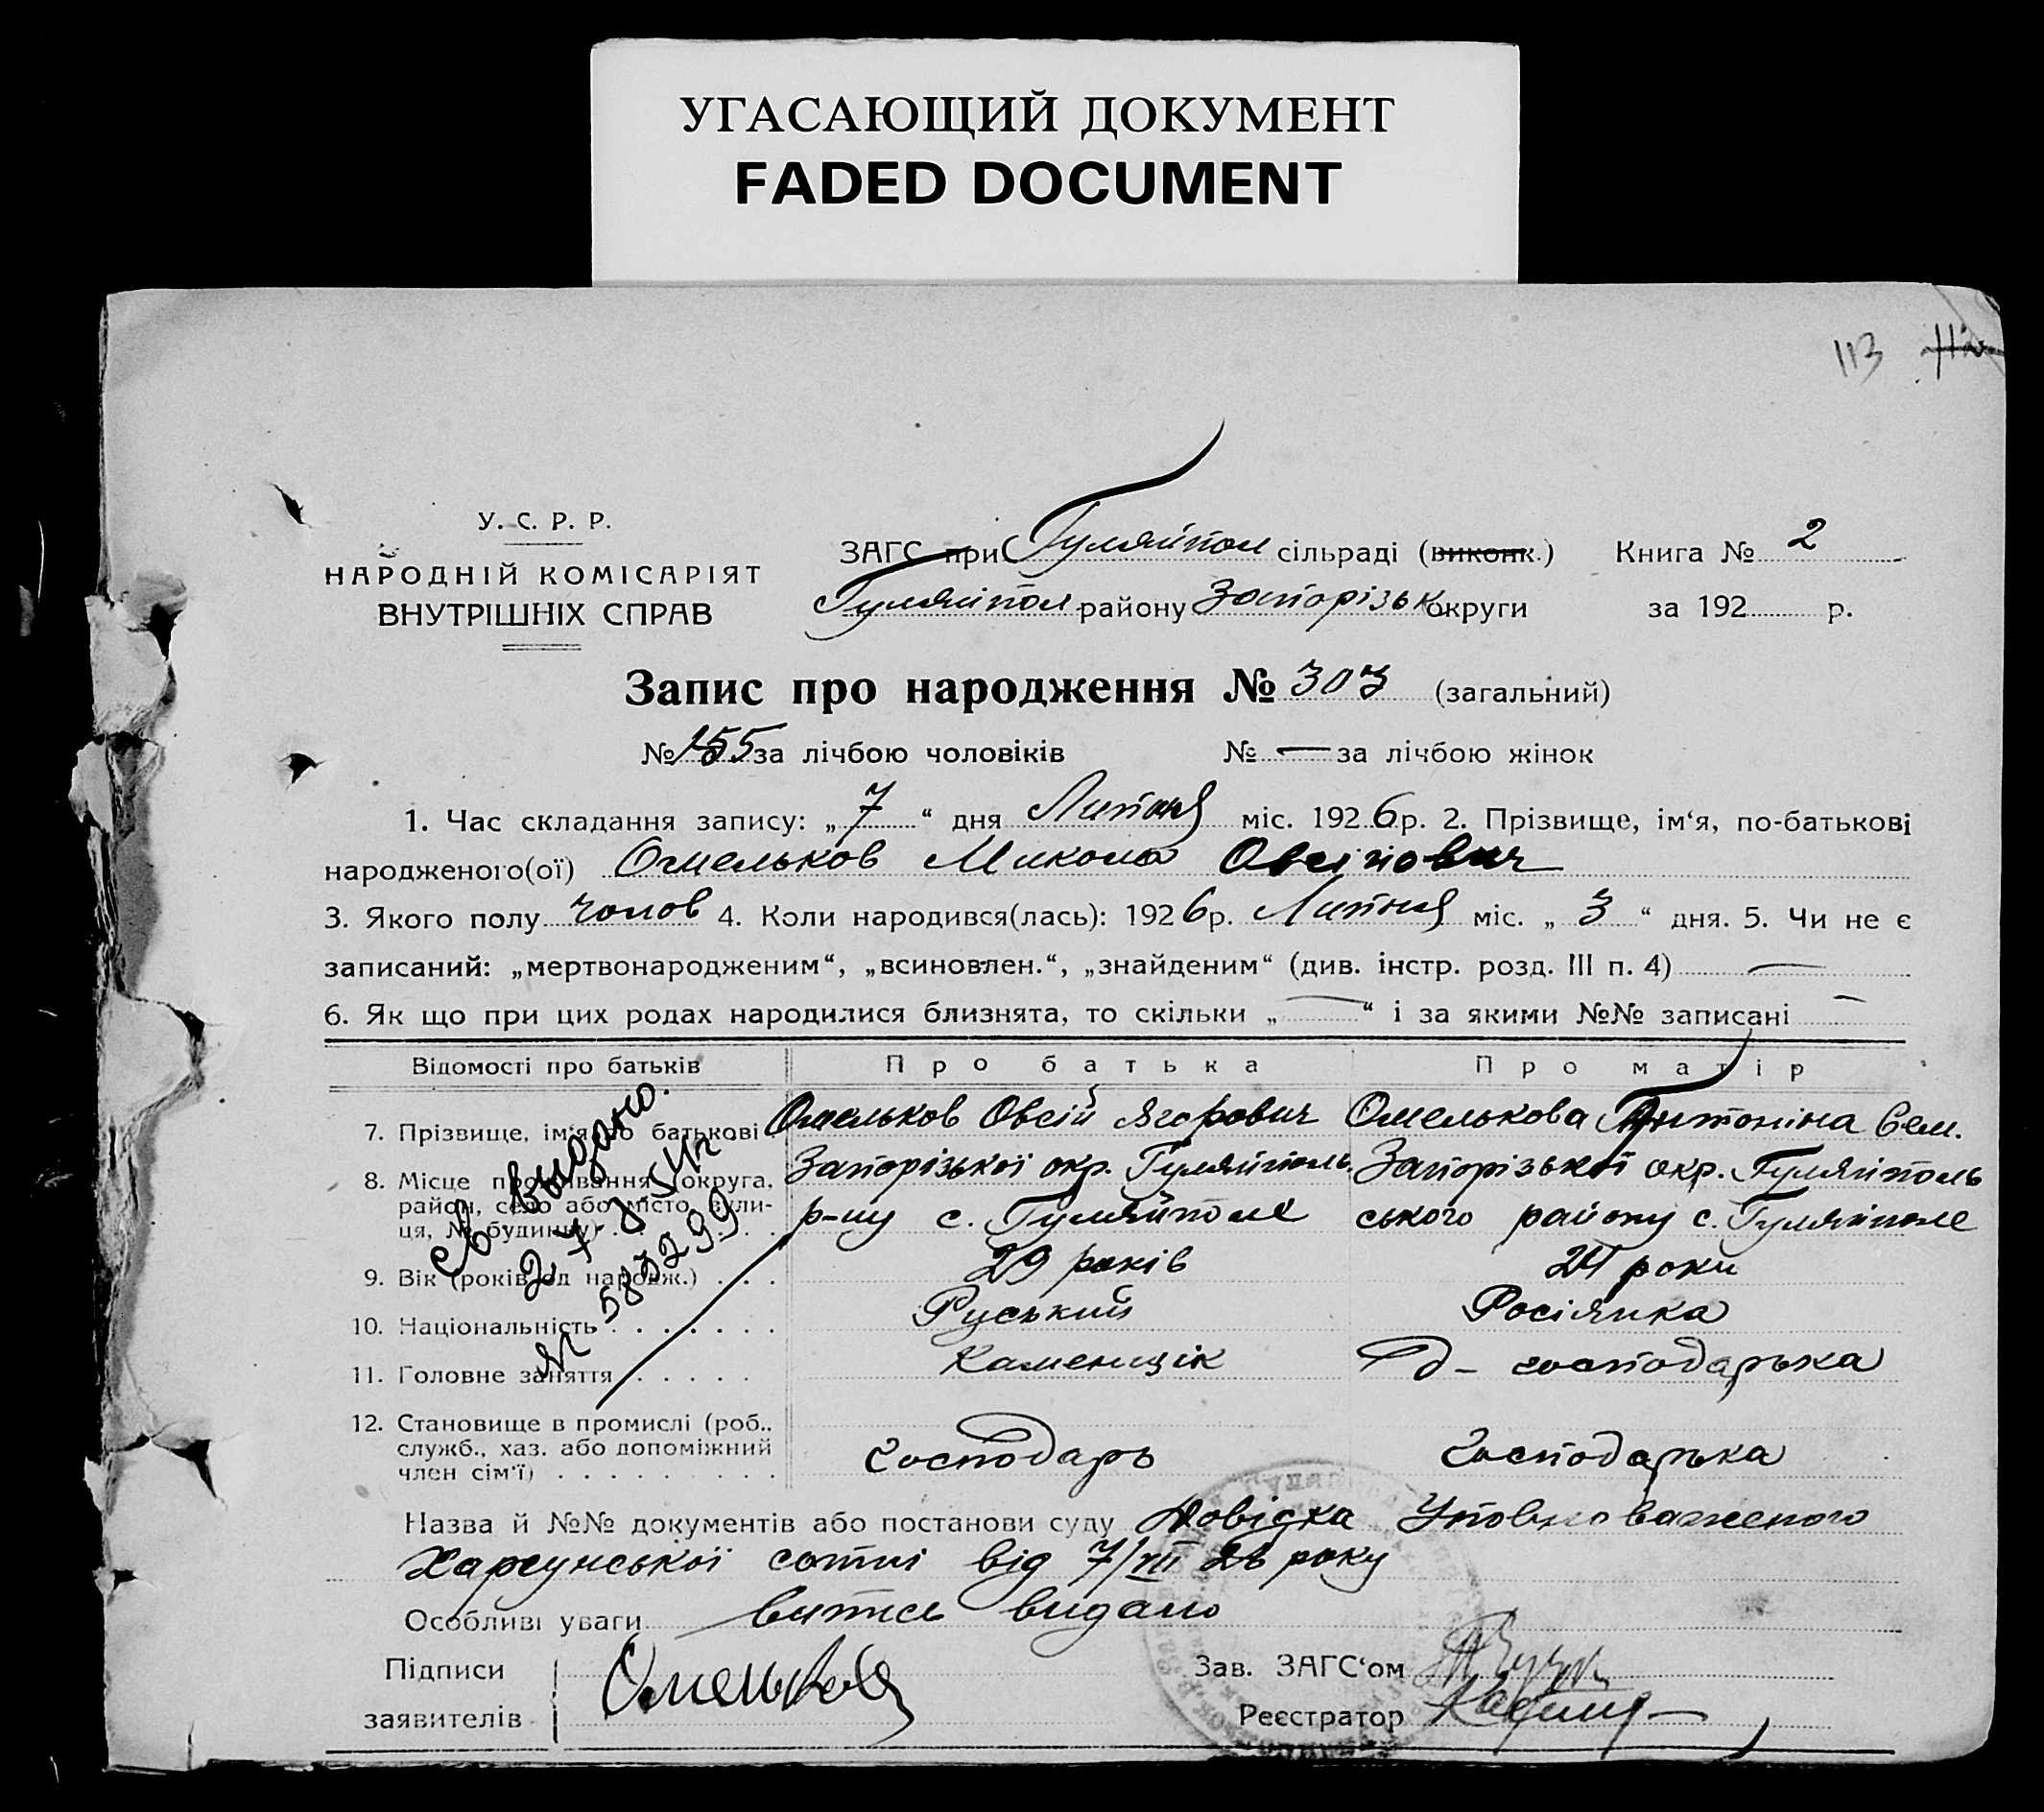 УГАСАЮЩИЙ ДОКУМЕНТ
FADED DOCUMENT
113 112
У. С. Р. Р.
НАРОДНІЙ КОМІСАРІЯТ
ВНУТРІШНІХ СПРАВ
ЗАГС при Гуляйпол сільраді (виконк.) Книга № 2
Гуляйпол району Запорізьк округи за 192 р.
Запис про народження № 303 (загальний)
№ 155 за лічбою чоловіків № — за лічбою жінок
1. Час складання запису: „7“ дня Липня міс. 1926 р. 2. Прізвище, ім‘я, по-батькові
народженого(ої) Омельков Микола Овсійович
3. Якого полу чолов 4. Коли народився(лась): 1926 р. Липня міс. „3“ дня. 5. Чи не є
записаний: „мертвонародженим“, „всиновлен.“, „знайденим“ (див. інстр. розд. III п. 4) —
6. Як що при цих родах народилися близнята, то скільки „—“ і за якими №№ записані —
Відомості про батьків Про батька Про матір
7. Прізвище, ім‘я по батькові Омельков Овсій Ягорович Омелькова Антоніна Сем.
8. Місце проживання (округа, район, село або місто, вулиця, № будинку) Запорізької окр. Гуляйполь. Запорізької окр. Гуляйполь
р-ну с. Гуляйполе ського району с. Гуляйполе
9. Вік (років од народж.) 29 років 24 роки
10. Національність Руський Росіянка
11. Головне заняття Каменщік Д-господарька
12. Становище в промислі (роб., служб., хаз. або допоміжний член сім‘ї) Господарь Господарька
Св Видано.
№ 583299
Назва й №№ документів або постанови суду Довідка Уповноваженого
сотні від 7/VII 26 року
Особливі уваги витяг видано
Підписи
заявителів
Омельков
Зав. ЗАГС‘ом
Реєстратор